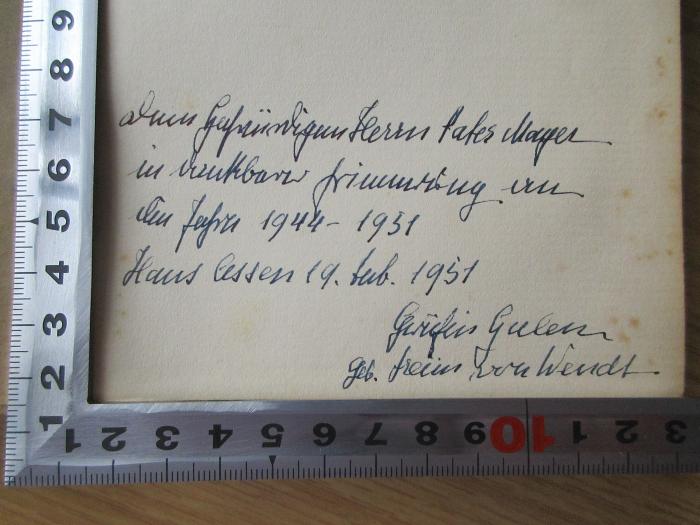 Dem Hochwürdigen Herrn Pater Mayer
in dankbarer Erinnerung an
die Jahre 1944 - 1951
Haus Assen 19. Feb. 1951
Gräfin Galen
geb. Freiin von Wendt.
9 8 7 6 5 4 3 2 1
1 2 3 4 5 6 7 8 9 10 1 2 3